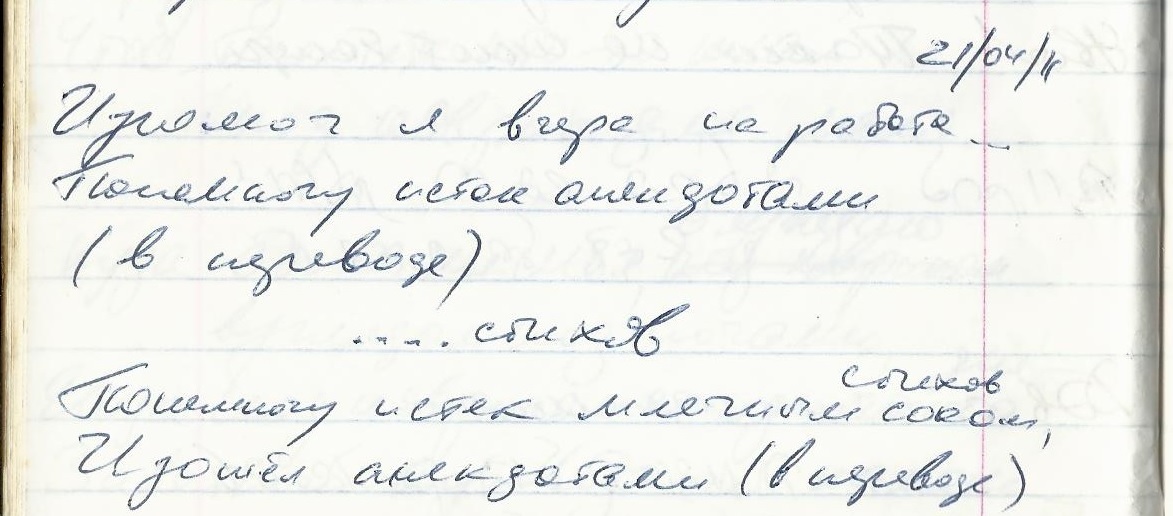 21/04/11
Изнемог я вчера на работе...
Понемногу истек анекдотами
(в переводе)
..... стихов
стихов
Понемногу истек млечным соком,
Изошёл анекдотами (в переводе)